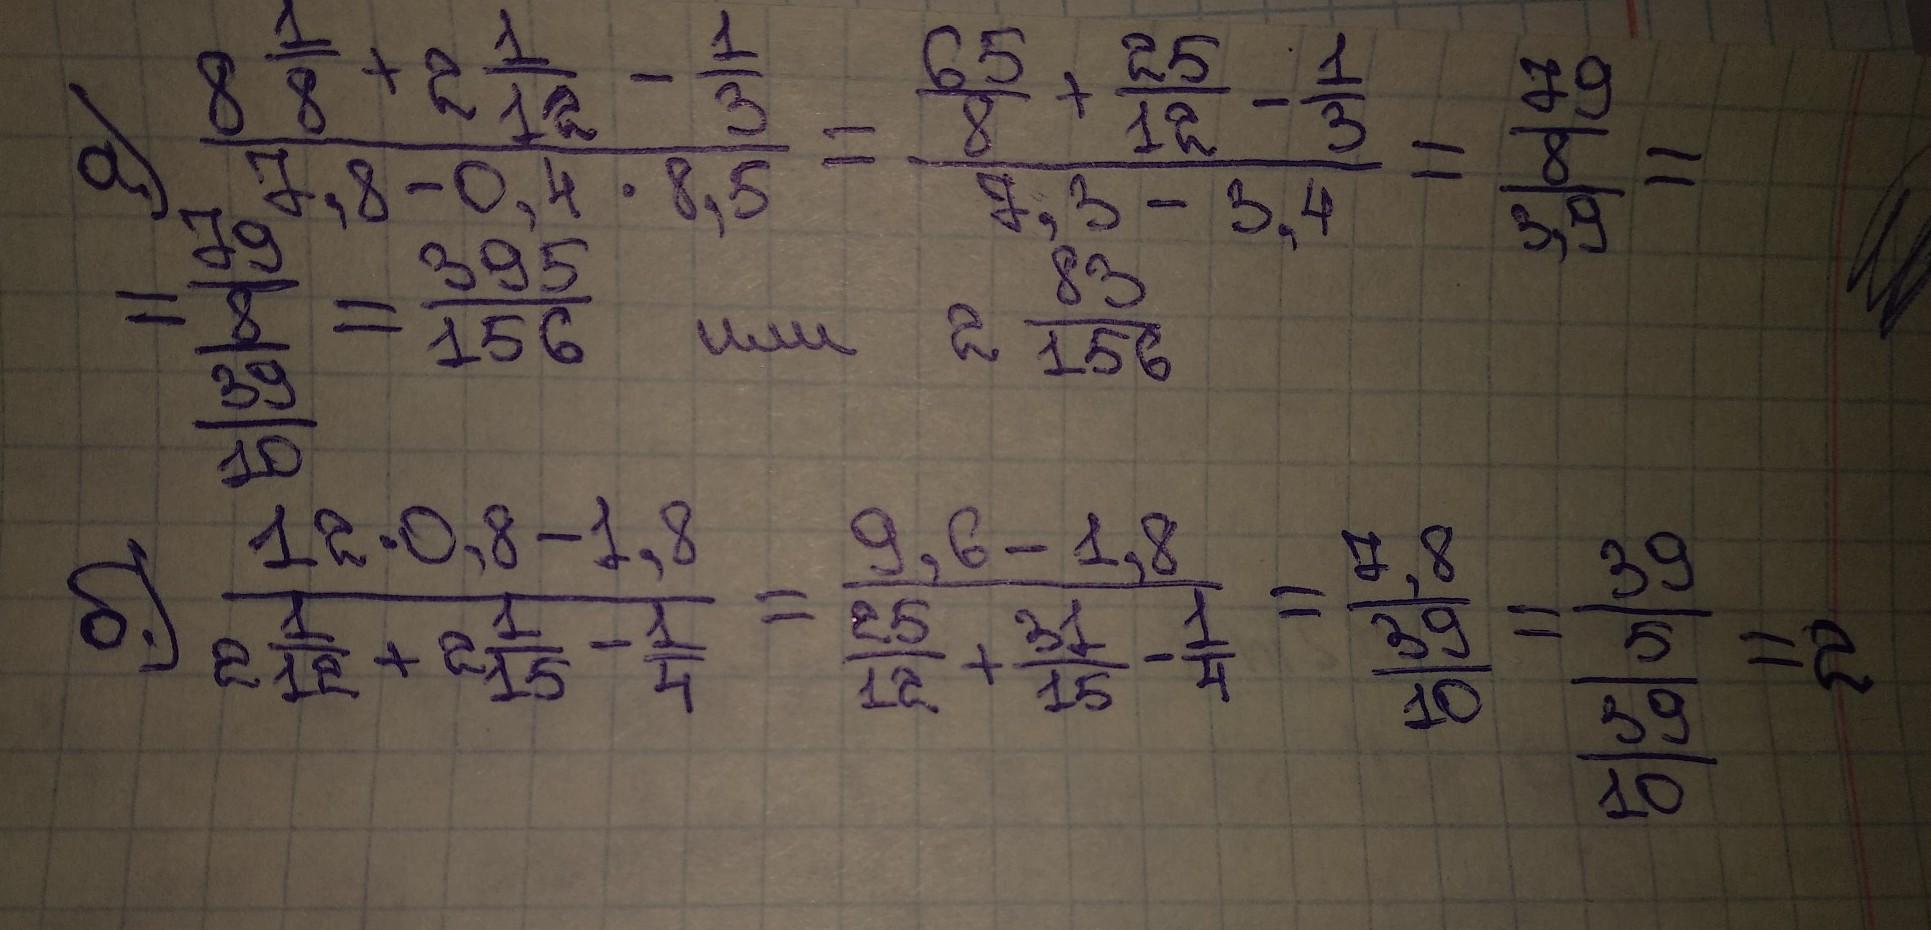 а) (8 1/8 + 2 1/12 - 1/3)/(7,8 - 0,4 · 8,5) = (65/8 + 25/12 - 1/3)/(7,3 - 3,4) = (79/8)/3,9 =
= (79/8)/(39/10) = 395/156 или 2 83/156
б) (12 · 0,8 - 1,8)/(2 1/12 + 2 1/15 - 1/4) = (9,6 - 1,8)/(25/12 + 31/15 - 1/4) = 7,8/(39/10) = (39/5)/(39/10) = 2